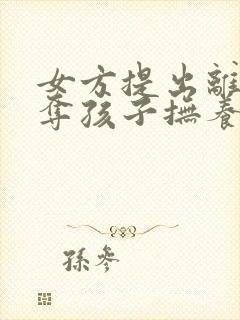 女方提出離
奪孩子撫養
孫參